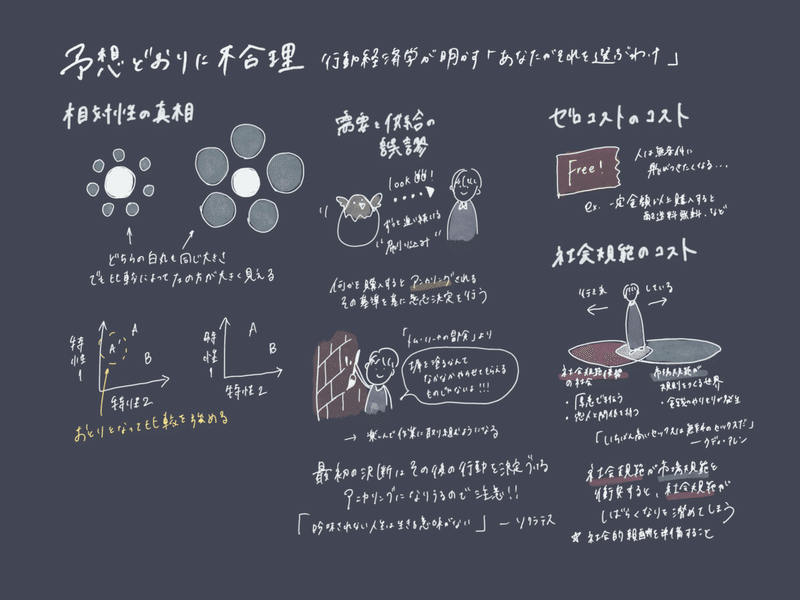 予想どおりに不合理 行動経済学が明かす「あなたがそれを選ぶわけ」
相対性の真相
どちらの白丸も同じ大きさ
でも比較によって左の方が大きく見える
特性1
A
A'
B
特性2
おとりとなって比較を強める
特性1
A
B
特性2
需要と供給の
誤謬
look 幽!
ずっと追い続ける
"刷り込み"
何かを購入するとアンカリングされる
その基準を基に意志決定を行う
「トム・ソーヤの冒険」より
塀を塗るなんて
なかなかやらせてもらえる
ものじゃないよ!!!
→ 楽しんで作業に取り組むようになる
最初の決断はその後の行動を決定づける
アンカリングになりうるので注意!!
「吟味されない人生は生きる意味がない」 ー ソクラテス
ゼロコストのコスト
Free!
人は無条件に
飛びつきたくなる...
ex. 一定金額以上購入すると
送料無料、など
社会規範のコスト
している
社会規範優勢
の社会
・厚意で行う
・恋人と関係を持つ
市場規範が
規則をつくる世界
・金銭のやりとりが発生
「いちばん高いセックスは無料のセックスだ」
ー ウディ・アレン
社会規範が市場規範と
衝突すると、社会規範が
しばらくなりを潜めてしまう
☆ 社会的報酬を準備すること